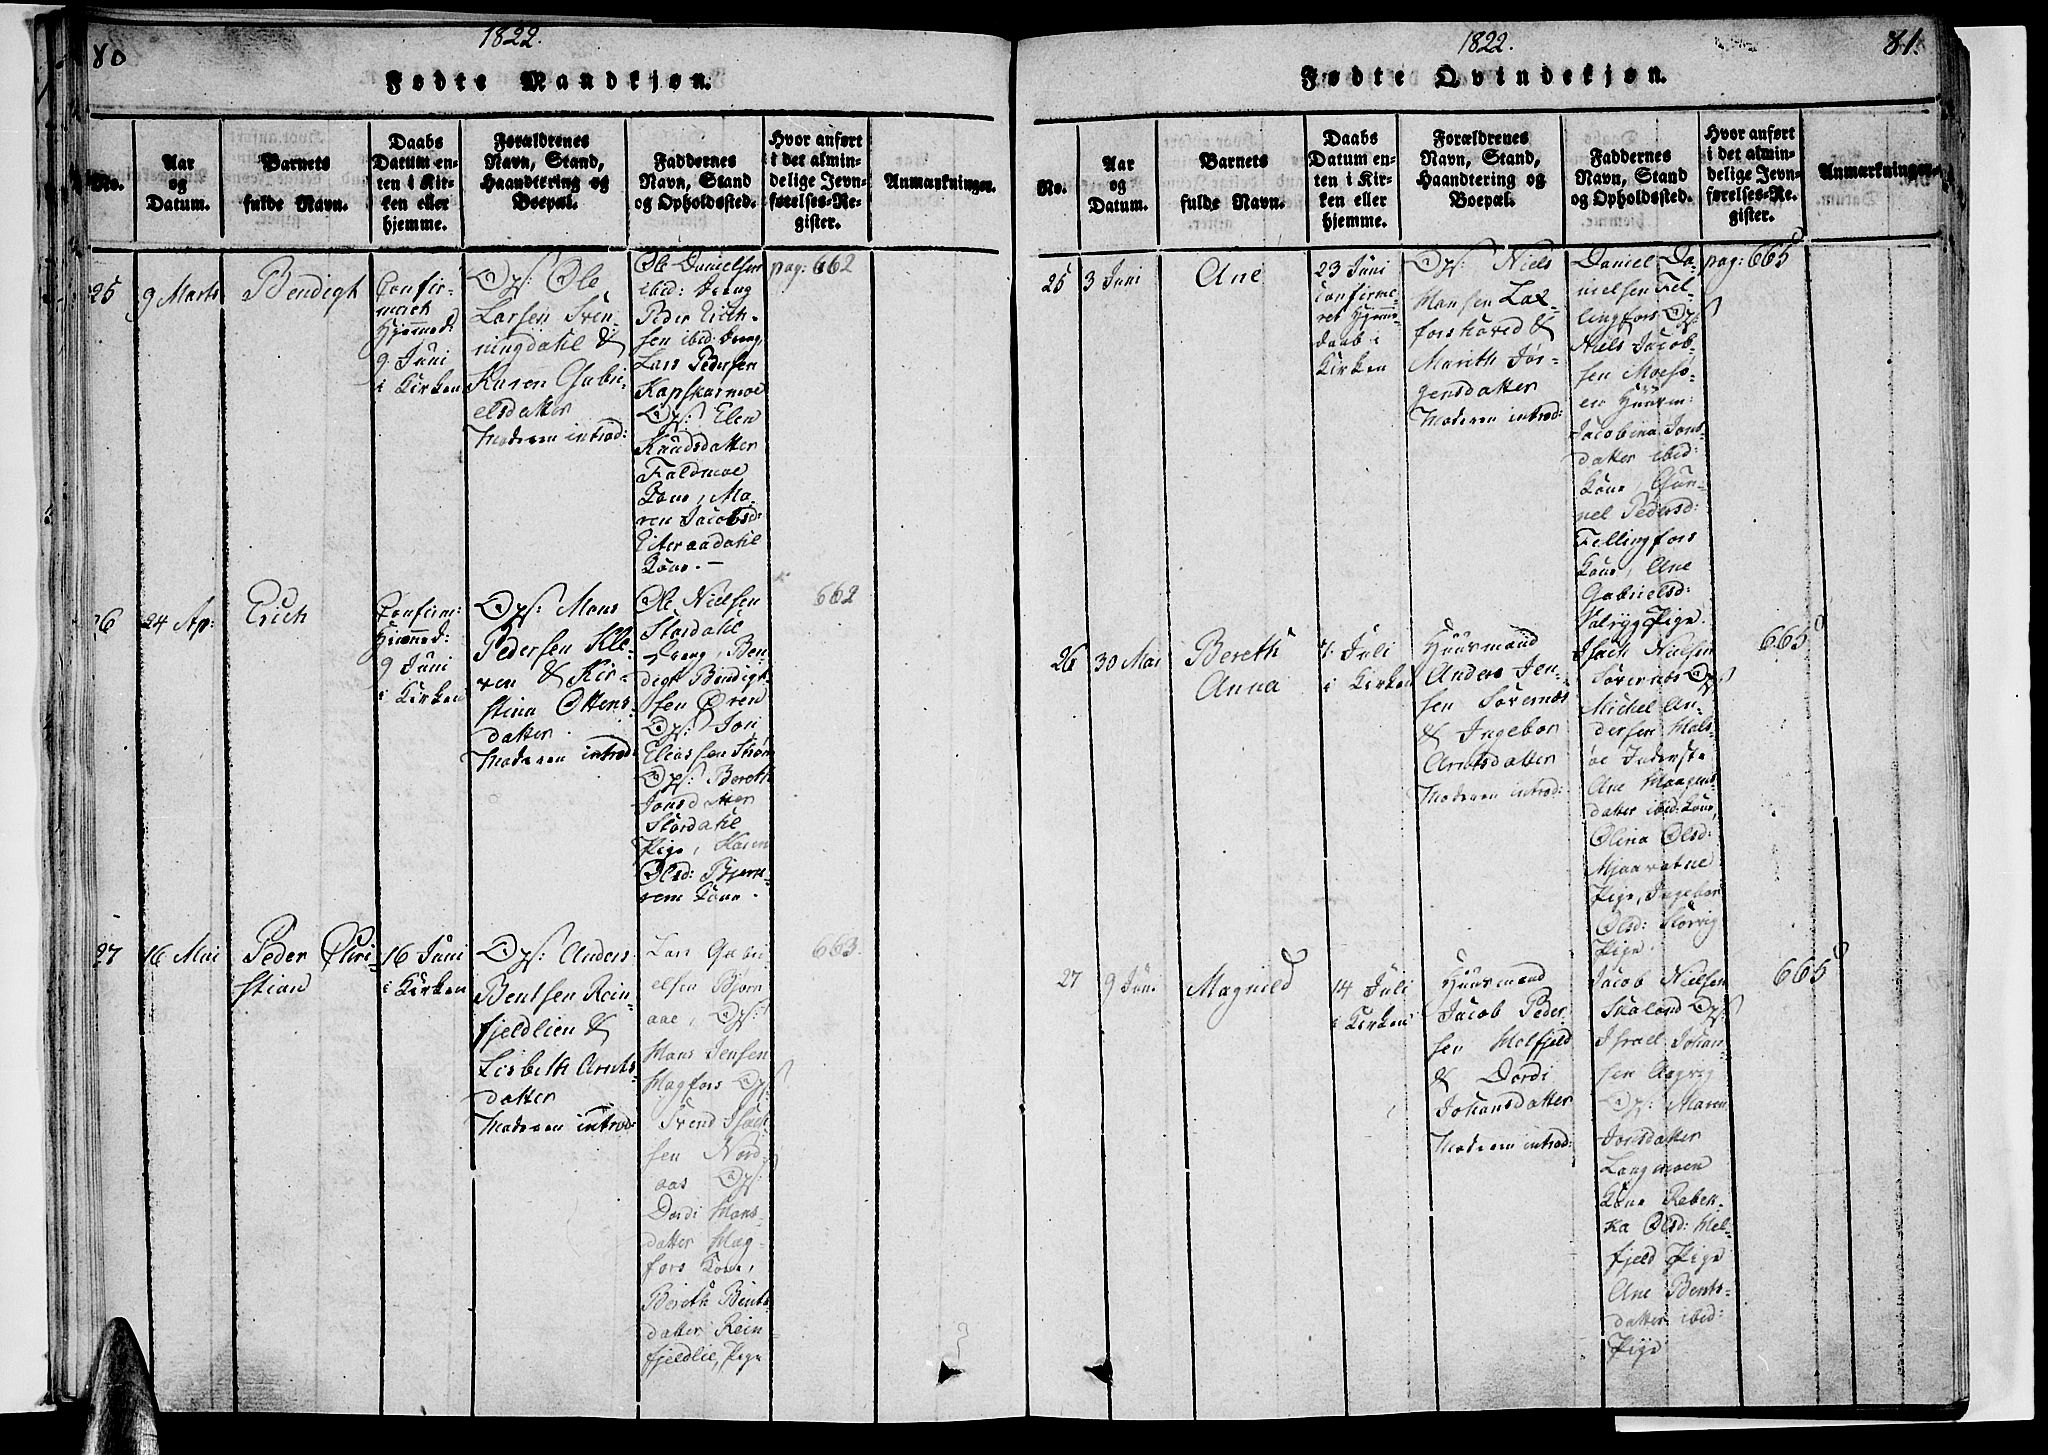 80
1822.
Fødte Mandkjøn.
No.
Aar
og
Datum.
Barnets
fulde Navn.
Daabs
Datum en-
ten i Kir-
ken eller
hjemme.
Forældrenes
Navn, Stand,
Haandtering og
Boepæl.
Faddernes
Navn, Stand
og Opholdssted.
Hvor anført
i det almin-
delige Jevn-
førelses-Re-
gister.
Anmærkninger.
25
9 Marts
Bendigt
Confir-
meret
Hjemmed:
9 Juni
i Kirken
Ops: Ole
Larsen Sven-
ningdahl &
Karen Gabri-
elsdatter
Moderen introd:
Ole Danielsen
ibid: Dreng
Peder Erich-
sen ibid: Dreng
Lars Pedersen
Kapskarmoe
Ops: Elen
Knudsdatter
Faldmoe
Kone, Ma-
ren Jacobsd:
Eiteraadahl
Kone. —
pag: 662
26
24 Ap:
Erich
Confirm:
Hiemmed:
9 Juni
i Kirken
Ops: Mons
Pedersen Kle-
ven & Kir-
stina Ottens-
datter
Moderen introd:
Ole Nielsen
Stordahl
Dreng, Ben-
digt Bendigt-
sen Øren
Ops: Joni
Eliassen Strøm
Ops: Bereth
Jonsdatter
Stordahl
Pige, Karen
Olsd: Bjerk-
rem Kone.
662
27
16 Mai
Peder Chri-
stian
16 Juni
i Kirken
Ops: Anders
Bentsen Rein-
fjeldlien &
Lisbeth Arnts-
datter
Moderen introd:
Lars Gabri-
elsen Bjørn
aae, Ops:
Hans Jensen
Hagfors Ops
Svend Isach-
sen Nord-
aas Ops:
Dordi Hans-
datter Hag-
fors Kone,
Bereth Bents-
datter Rein-
fjeldlie, Pige
663.
81.
1822.
Fødte Qvindekjøn.
No.
Aar
og
Datum.
Barnets
fulde Navn.
Daabs
Datum en-
ten i Kir-
ken eller
hjemme.
Forældrenes
Navn, Stand,
Haandtering og
Boepæl.
Faddernes
Navn, Stand
og Opholdssted.
Hvor anført
i det almin-
delige Jevn-
førelses-Re-
gister.
Anmærkninger.
25
3 Juni
Ane
23 Juni
confirme-
ret Hjemme
daab i
Kirken
Ops: Niels
Hansen Lax-
forshoved &
Mareth Jør-
gensdatter
Moderen introd:
Daniel Da-
nielsen Fel-
lingfors Ops
Niels Jacob-
sen Moesø-
en Huusm:
Jacobina Jons-
datter ibid:
Kone, Gun-
nel Pedersd:
Fellingfors
Kone, Ane
Gabrielsd:
Valryg Pige.
pag: 665
26
30 Mai
Bereth
Anna
7. Juli
i Kirken
Huusmand
Anders Jen-
sen Sørernæs
& Ingebor
Arntsdatter
Moderen introd:
Isach Nielsen
Sørernæs Ops:
Michel An-
dersen Hals-
øe Inderste
Ane Mongens
datter ibid: Kone,
Olina Olsd:
Mjaavatne
Pige, Ingebor
Olsd: Storvig
Pige.
665
27
9 Juni
Magnild
14 Juli
i Kirken
Huusmand
Jacob Peder
sen Helfjeld
& Dordi
Johansdatter
Moderen introd:
Jacob Nielsen
Skaland Ops:
Israel Johan-
sen Aagvig
Ops: Maren
Jonsdatter
Langmoen
Kone Rebek-
ka Olsd: Hel-
fjeld Pige
Ane Bents-
datter ibid:
Pige
665